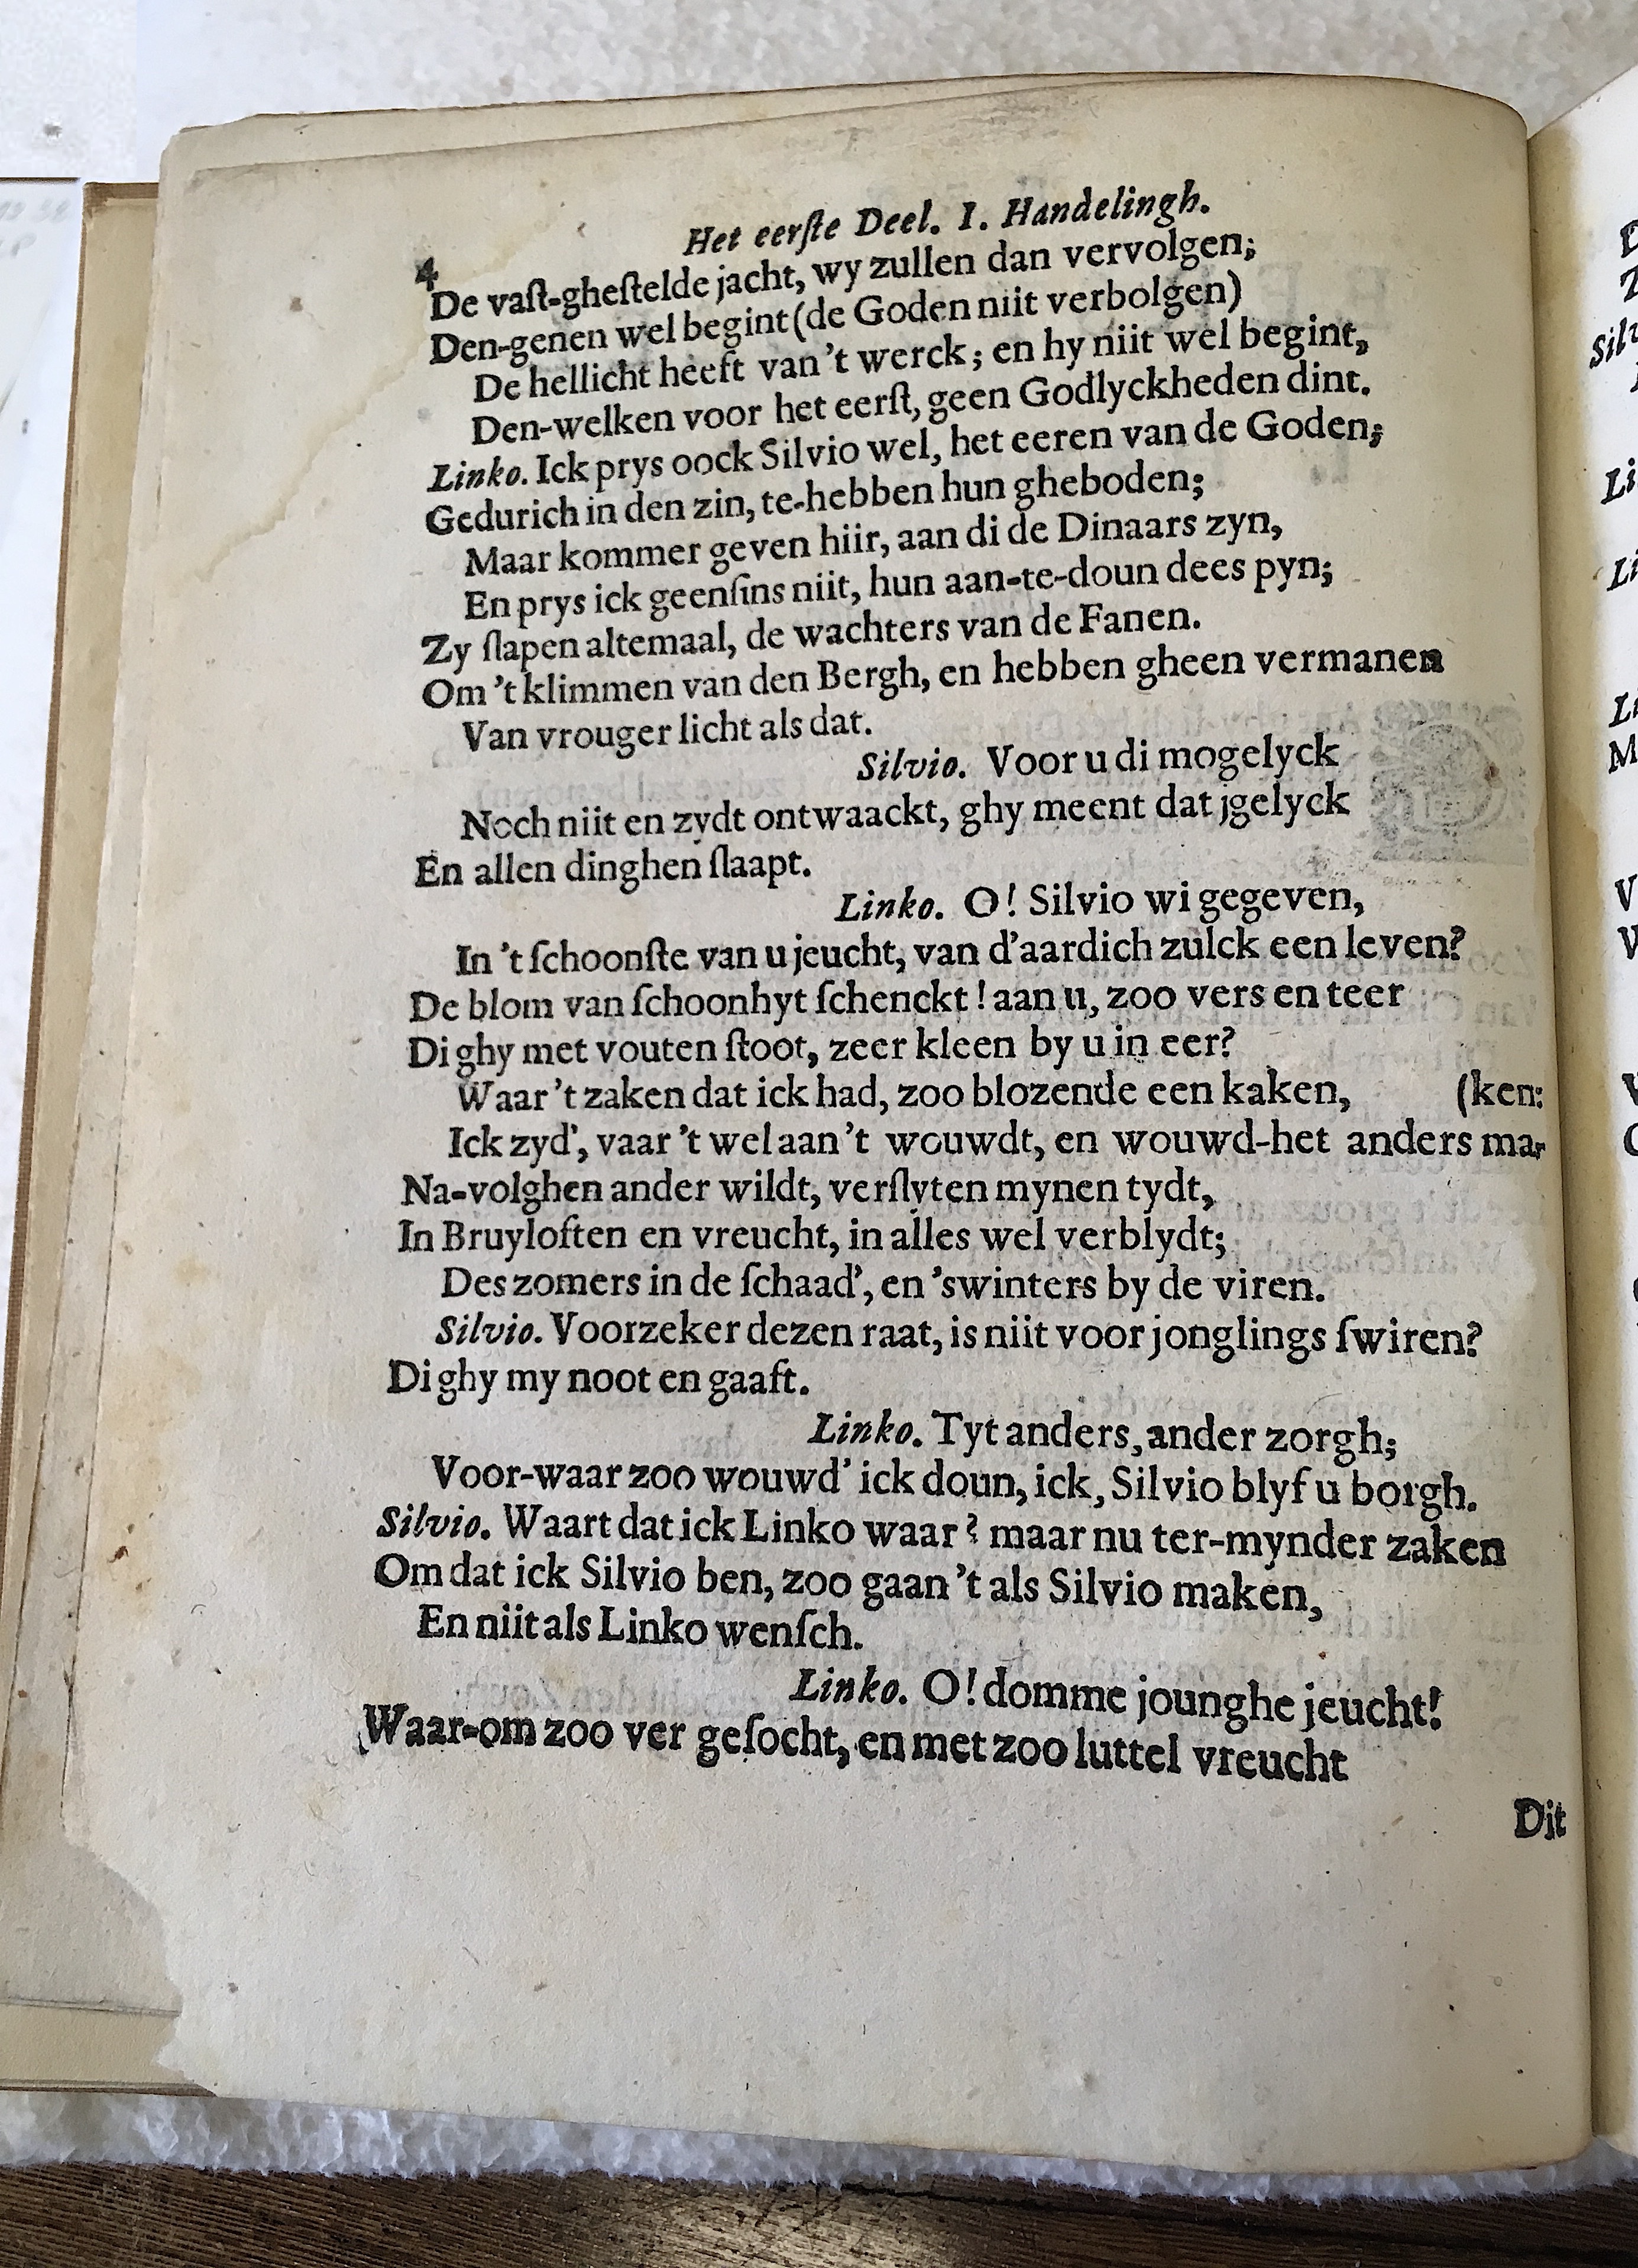 4
Het eerſte Deel. I. Handelingh.
De vaſt-gheſtelde jacht, wy zullen dan vervolgen;
Den-genen wel begint (de Goden niit verbolgen)
De hellicht heeft van 't werck; en hy niit wel begint,
Den-welken voor het eerſt, geen Godlyckheden dint.
Linko. Ick prys oock Silvio wel, het eeren van de Goden;
Gedurich in den zin, te-hebben hun gheboden;
Maar kommer geven hiir, aan di de Dinaars zyn,
En prys ick geenſins niit, hun aan-te-doun dees pyn;
Zy ſlapen altemaal, de wachters van de Fanen.
Om 't klimmen van den Bergh, en hebben gheen vermanen
Van vrouger licht als dat.
Silvio. Voor u di mogelyck
Noch niit en zydt ontwaackt, ghy meent dat jgelyck
En allen dinghen ſlaapt.
Linko. O! Silvio wi gegeven,
In 't ſchoonſte van u jeucht, van d'aardich zulck een leven?
De blom van ſchoonhyt ſchenckt! aan u, zoo vers en teer
Di ghy met vouten ſtoot, zeer kleen by u in eer?
Waar 't zaken dat ick had, zoo blozende een kaken, (ken:
Ick zyd', vaar 't wel aan 't wouwdt, en wouwd-het anders ma-
Na-volghen ander wildt, verſlyten mynen tydt,
In Bruyloften en vreucht, in alles wel verblydt;
Des zomers in de ſchaad', en 'swinters by de viren.
Silvio. Voorzeker dezen raat, is niit voor jonglings ſwiren?
Di ghy my noot en gaaft.
Linko. Tyt anders, ander zorgh;
Voor-waar zoo wouwd' ick doun, ick, Silvio blyf u borgh.
Silvio. Waart dat ick Linko waar? maar nu ter-mynder zaken
Om dat ick Silvio ben, zoo gaan 't als Silvio maken,
En niit als Linko wenſch.
Linko. O! domme jounghe jeucht!
Waar-om zoo ver geſocht, en met zoo luttel vreucht
Dit